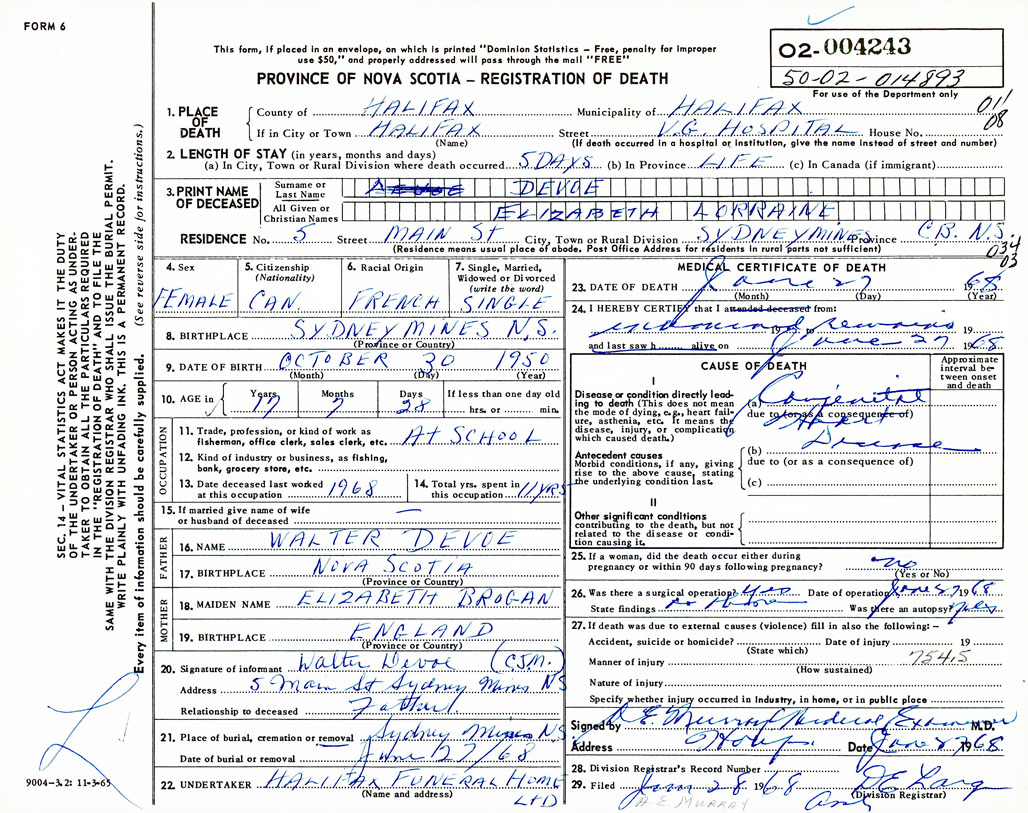 FORM 6
This form, if placed in an envelope, on which is printed "Dominion Statistics – Free, penalty for improper
use $50," and properly addressed will pass through the mail "FREE"
PROVINCE OF NOVA SCOTIA – REGISTRATION OF DEATH
02-004243
50-02-014893
For use of the Department only
011
08
1. PLACE OF DEATH
County of HALIFAX Municipality of HALIFAX
If in City or Town HALIFAX Street V.G. HOSPITAL House No.
(Name) (If death occurred in a hospital or institution, give the name instead of street and number)
2. LENGTH OF STAY (in years, months and days)
(a) In City, Town or Rural Division where death occurred 5 DAYS (b) In Province LIFE (c) In Canada (if immigrant)
3. PRINT NAME OF DECEASED
Surname or Last Name DEVOE
All Given or Christian Names ELIZABETH LORRAINE
RESIDENCE No. 5 Street MAIN St City, Town or Rural Division SYDNEY MINES Province C.B. N.S.
(Residence means usual place of abode. Post Office Address for residents in rural parts not sufficient)
034
03
4. Sex FEMALE
5. Citizenship (Nationality) CAN.
6. Racial Origin FRENCH
7. Single, Married, Widowed or Divorced (write the word) SINGLE
8. BIRTHPLACE SYDNEY MINES N.S.
(Province or Country)
9. DATE OF BIRTH OCTOBER 30 1950
(Month) (Day) (Year)
10. AGE in Years 17 Months 7 Days 28 If less than one day old hrs. or min.
OCCUPATION
11. Trade, profession, or kind of work as
fisherman, office clerk, sales clerk, etc. AT SCHOOL
12. Kind of industry or business, as fishing,
bank, grocery store, etc.
13. Date deceased last worked at this occupation 1968
14. Total yrs. spent in this occupation 11 YRS
15. If married give name of wife
or husband of deceased —
FATHER
16. NAME WALTER DEVOE
17. BIRTHPLACE NOVA SCOTIA
(Province or Country)
MOTHER
18. MAIDEN NAME ELIZABETH BROGAN
19. BIRTHPLACE ENGLAND
(Province or Country)
20. Signature of informant Walter Devoe (C.J.M.)
Address 5 Main St Sydney Mines NS
Relationship to deceased Father
21. Place of burial, cremation or removal Sydney Mines NS
Date of burial or removal June 27/68
22. UNDERTAKER HALIFAX FUNERAL HOME
(Name and address) LTD
MEDICAL CERTIFICATE OF DEATH
23. DATE OF DEATH June 27 1968
(Month) (Day) (Year)
24. I HEREBY CERTIFY that I attended deceased from:
19 to 19
and last saw h alive on June 27 1968
CAUSE OF DEATH
Approximate interval between onset and death
I
Disease or condition directly leading to death (This does not mean
the mode of dying, e.g., heart failure, asthenia, etc. It means the
disease, injury, or complication
which caused death.)
(a) Congenital
due to (or as a consequence of)
Heart
Disease
Antecedent causes
Morbid conditions, if any, giving
rise to the above cause, stating
the underlying condition last.
(b)
due to (or as a consequence of)
(c)
II
Other significant conditions
contributing to the death, but not
related to the disease or condition causing it.
25. If a woman, did the death occur either during
pregnancy or within 90 days following pregnancy? no
(Yes or No)
26. Was there a surgical operation? yes Date of operation June 27 1968
State findings as above Was there an autopsy? yes
27. If death was due to external causes (violence) fill in also the following: –
Accident, suicide or homicide? Date of injury 19
(State which)
754.5
Manner of injury
(How sustained)
Nature of injury
Specify whether injury occurred in Industry, in home, or in public place
Signed by A E Murray Medical Examiner M.D.
Address Date June 27 1968
28. Division Registrar's Record Number
29. Filed June 28 1968
(Division Registrar)
A.E. MURRAY
SEC. 14 – VITAL STATISTICS ACT MAKES IT THE DUTY
OF THE UNDERTAKER OR PERSON ACTING AS UNDER-
TAKER TO OBTAIN ALL THE PARTICULARS REQUIRED
IN THE "REGISTRATION OF DEATH" AND TO FILE THE
SAME WITH THE DIVISION REGISTRAR WHO SHALL ISSUE THE BURIAL PERMIT.
WRITE PLAINLY WITH UNFADING INK. THIS IS A PERMANENT RECORD.
Every item of information should be carefully supplied. (See reverse side for instructions.)
9004-3.2: 11-3-65